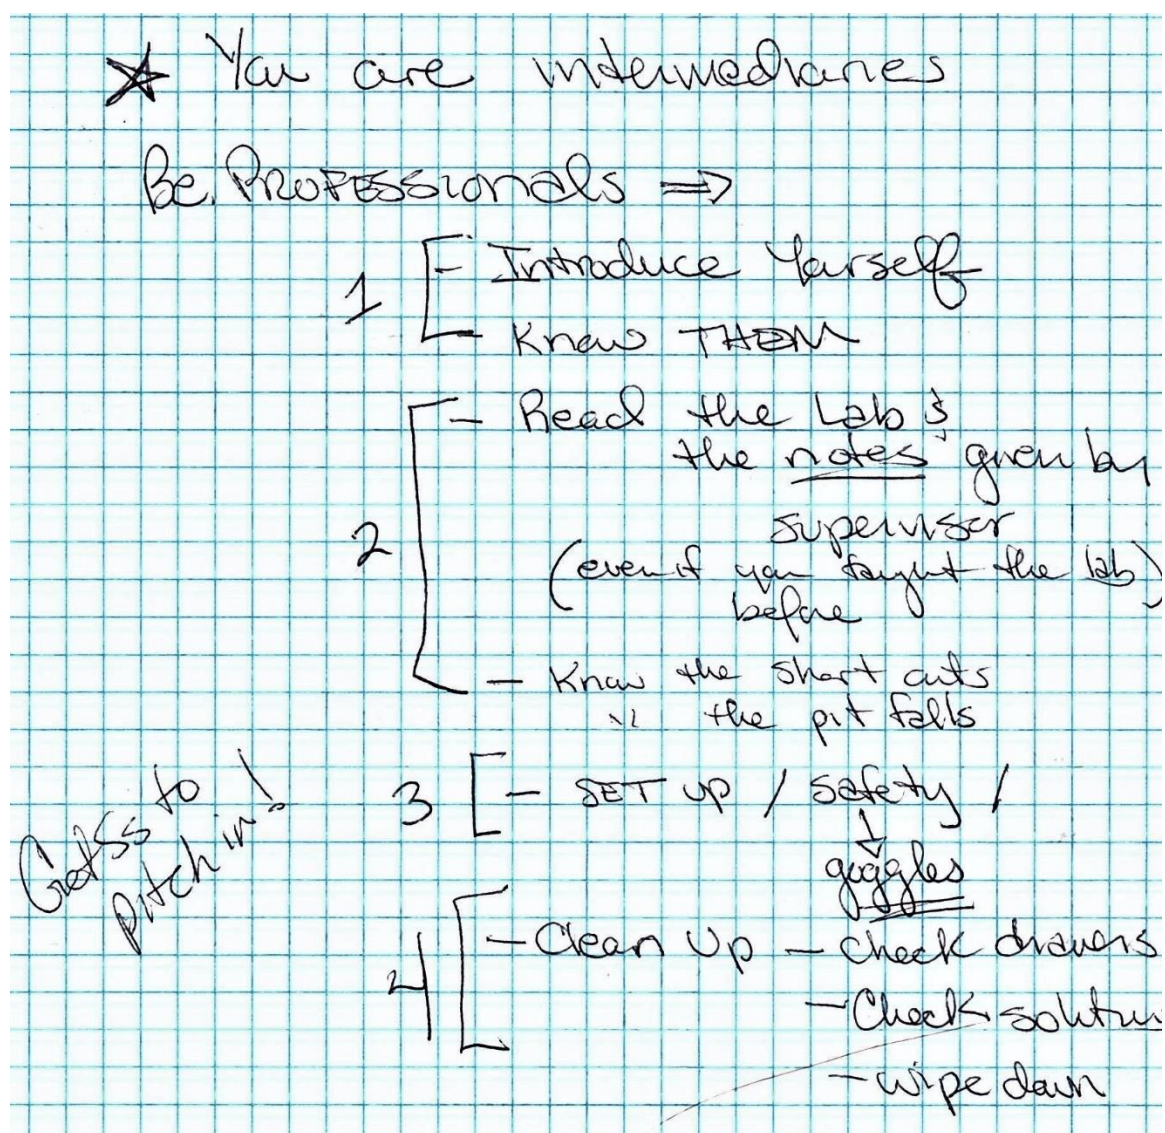 ★ You are intermediaries
Be. PROFESSIONals ⇒
1 - Introduce Yourself
- Know THEM
2 - Read the Lab &
the notes given by
supervisor
(even if you taught the lab)
before
- Know the short cuts
" the pit falls
3 - SET UP / safety /
↓
goggles
Get Ss to
pitch in!
4 - Clean Up - Check drawers
- Check solution
- wipe down